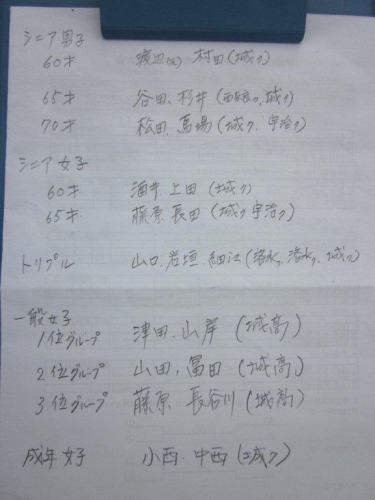 シニア男子
60才 渡辺 村田(城ク)
65才 谷田、杉井(西 城ク)
70才 松田、馬場(城ク、宇治ク)
シニア女子
60才 酒井、上田(城ク)
65才 藤原、長田(城ク、宇治ク)
トリプル 山口、岩垣、細江(洛水、洛水、城ク)
一般女子
1位グループ 津田、山岸(城高)
2位グループ 山田、冨田(城高)
3位グループ 藤原 長谷川(城高)
成年女子 小西、中西(城ク)